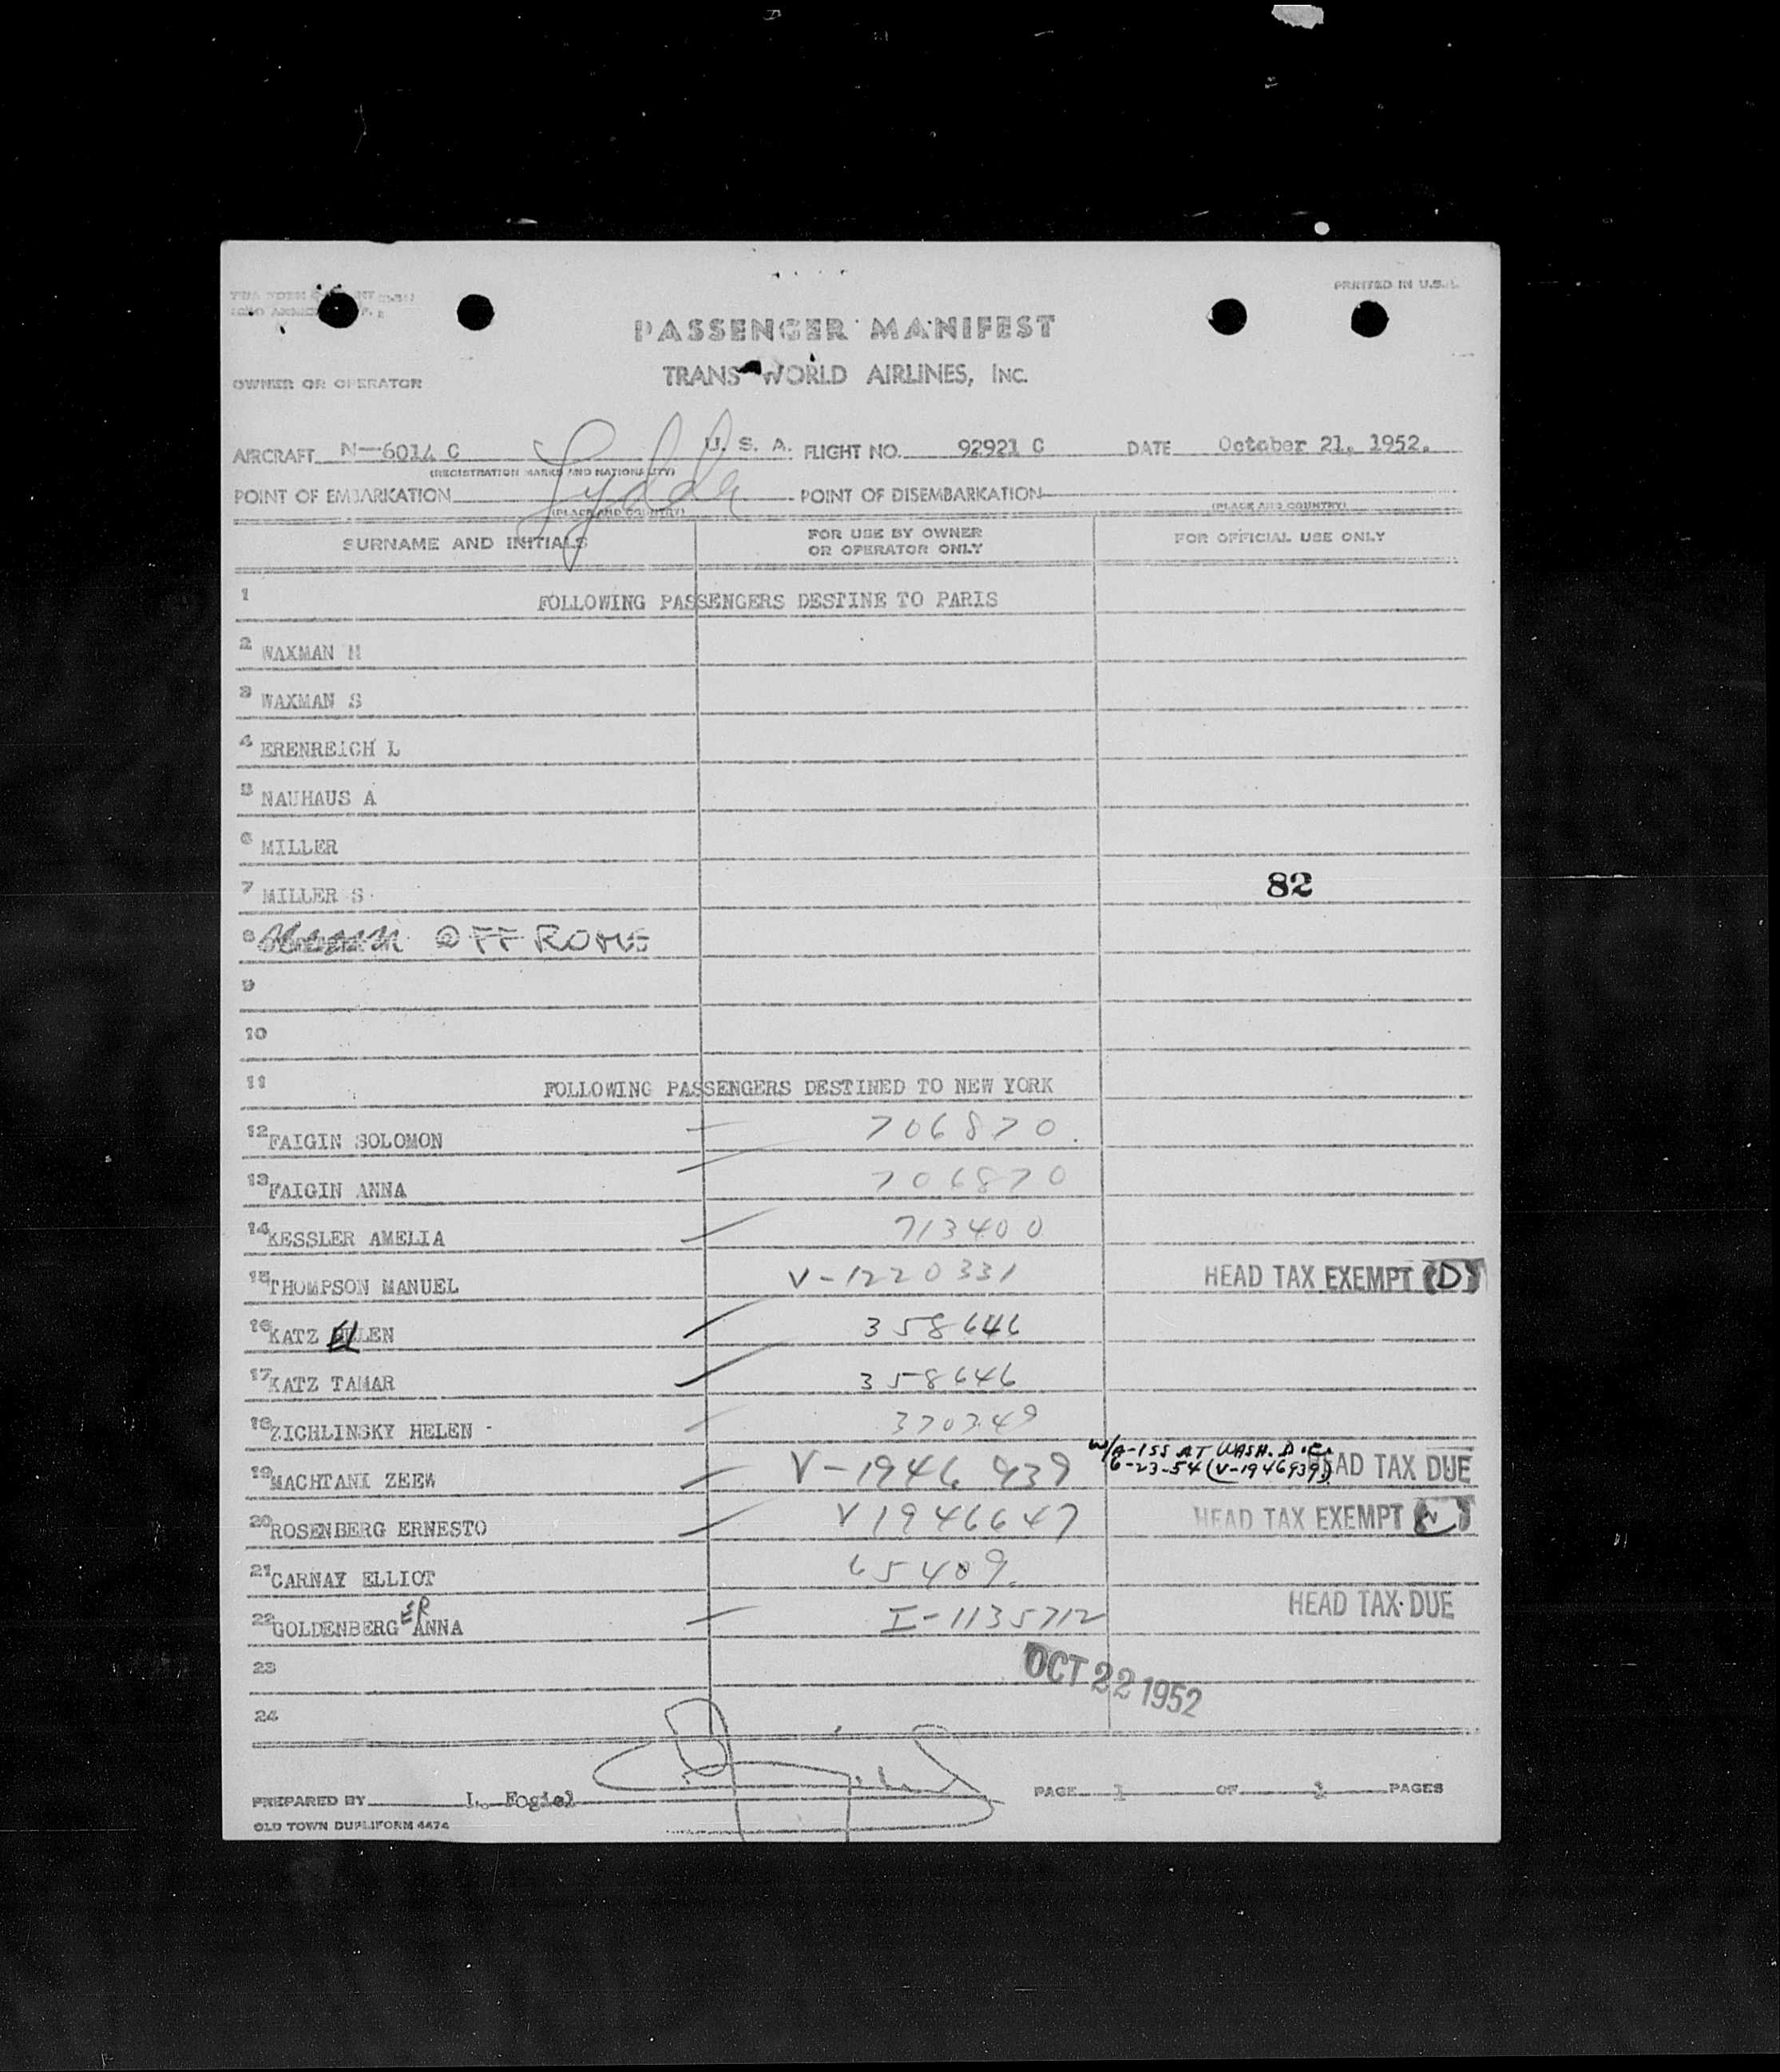 PRINTED IN U.S.A.
PASSENGER MANIFEST
TRANS WORLD AIRLINES, INC.
OWNER OR OPERATOR
AIRCRAFT N-6014 C U. S. A. FLIGHT NO. 92921 C DATE October 21, 1952.
(REGISTRATION MARKS AND NATIONALITY)
POINT OF EMBARKATION Lydda POINT OF DISEMBARKATION
(PLACE AND COUNTRY) (PLACE AND COUNTRY)
SURNAME AND INITIALS FOR USE BY OWNER OR OPERATOR ONLY FOR OFFICIAL USE ONLY
1 FOLLOWING PASSENGERS DESTINE TO PARIS
2 WAXMAN M
3 WAXMAN S
4 ERENREICH L
5 NAUHAUS A
6 MILLER
7 MILLER S 82
8 OFF ROME
9
10
11 FOLLOWING PASSENGERS DESTINED TO NEW YORK
12 FAIGIN SOLOMON 706870
13 FAIGIN ANNA 706870
14 KESSLER AMELIA 713400
15 THOMPSON MANUEL V-1220331 HEAD TAX EXEMPT (D)
16 KATZ ELLEN 358646
17 KATZ TAMAR 358646
18 ZICHLINSKY HELEN - 370349
W/A-155 AT WASH. D.C.
19 MACHTANI ZEEW V-1946939 6-23-54 (V-1946939) HEAD TAX DUE
20 ROSENBERG ERNESTO V1946647 HEAD TAX EXEMPT
21 CARNAY ELLIOT 65409.
22 GOLDENBERG ER ANNA I-1135712 HEAD TAX DUE
23
OCT 22 1952
24
PREPARED BY L. Fogiel PAGE 1 OF 1 PAGES
OLD TOWN DUPLIFORM 4474